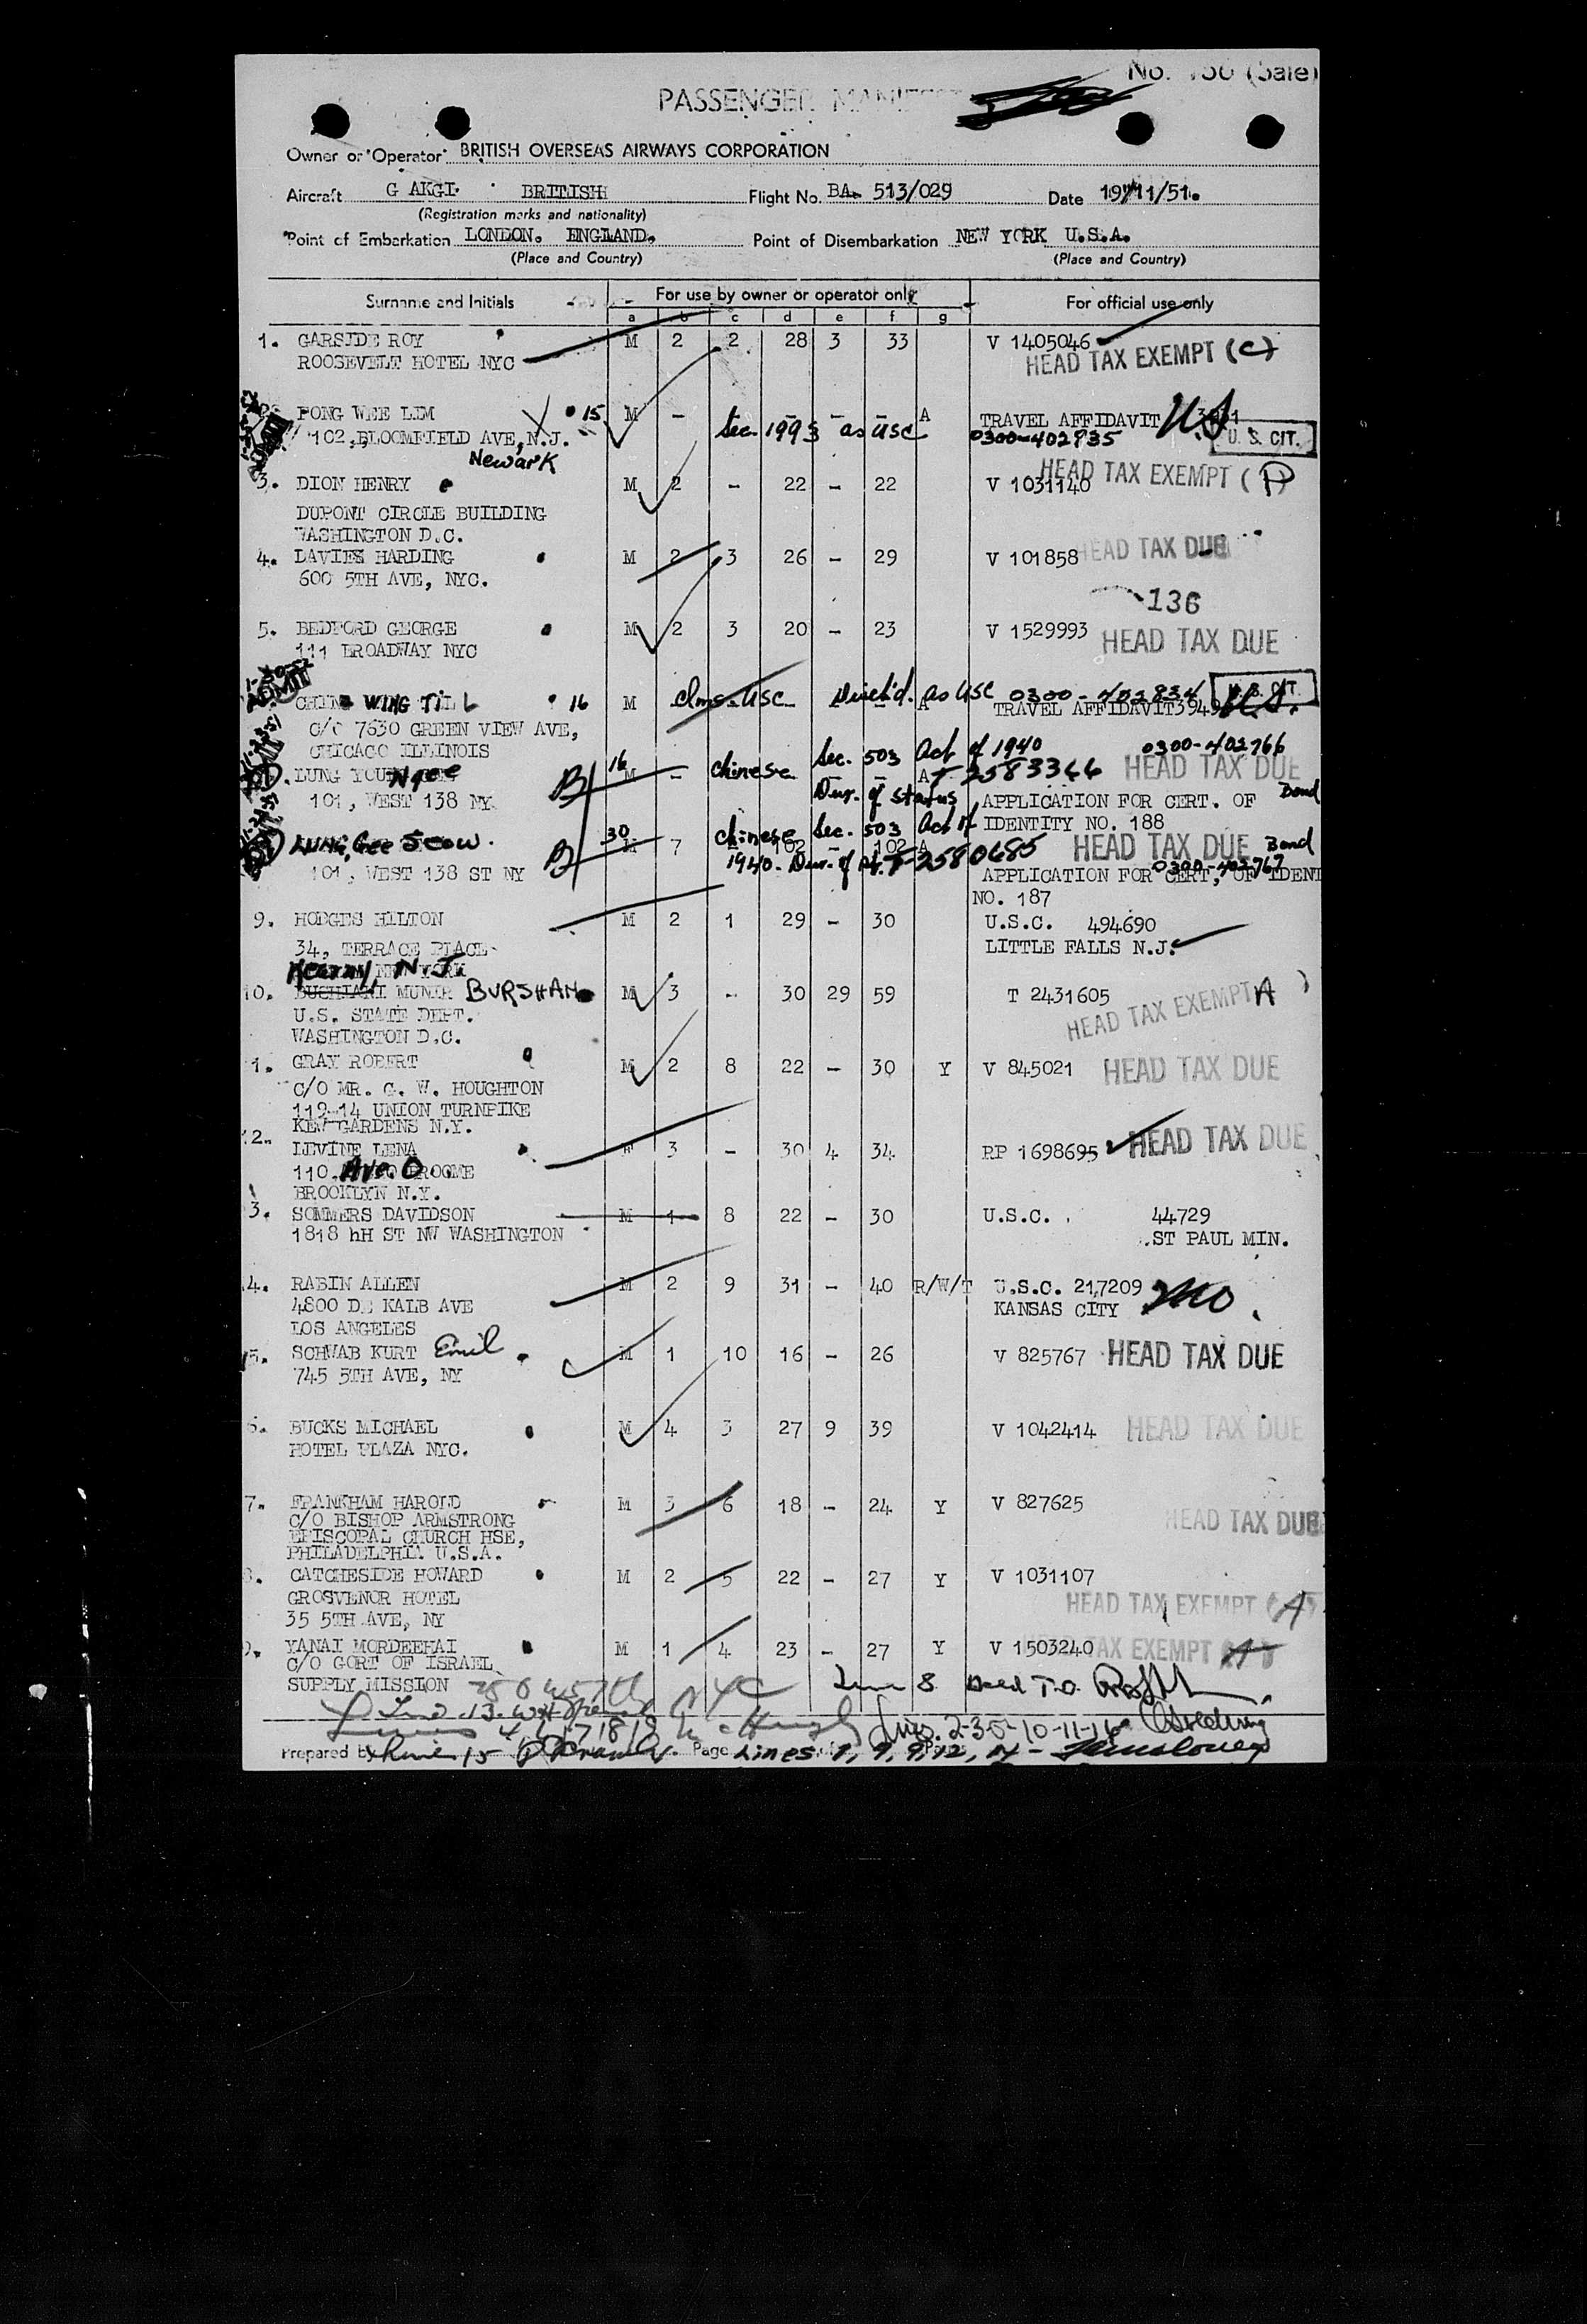 No. (Sale)
PASSENGER MANIFEST
Owner or Operator BRITISH OVERSEAS AIRWAYS CORPORATION
Aircraft G AKGI. BRITISH Flight No. BA. 513/029 Date 19/11/51.
(Registration marks and nationality)
Point of Embarkation LONDON. ENGLAND. Point of Disembarkation NEW YORK U.S.A.
(Place and Country) (Place and Country)
Surname and Initials For use by owner or operator only For official use only
a b c d e f g
1. GARSIDE ROY M 2 2 28 3 33 V 1405046
ROOSEVELT HOTEL NYC HEAD TAX EXEMPT (C)
PONG WEE LIM 15 M - - - - A TRAVEL AFFIDAVIT U.S.
102, BLOOMFIELD AVE, N.J. Sec. 1993 as USC 0300-402935 U. S. CIT.
Newark
3. DION HENRY M 2 - 22 - 22 V 1031140 HEAD TAX EXEMPT (P)
DUPONT CIRCLE BUILDING
WASHINGTON D.C.
4. DAVIES HARDING M 2 3 26 - 29 V 101858 HEAD TAX DUE
600 5TH AVE, NYC.
136
5. BEDFORD GEORGE M 2 3 20 - 23 V 1529993 HEAD TAX DUE
111 BROADWAY NYC
CHIN WING TIL 16 M Clms. USC as USC 0300-402834 U. S. CIT.
A TRAVEL AFFIDAVIT 3949 U.S.
C/O 7630 GREEN VIEW AVE,
CHICAGO ILLINOIS Sec. 503 Act of 1940 0300-402766
LUNG YOUN Ngee 16 M - Chinese - - A T-2583346 HEAD TAX DUE
101, WEST 138 NY. Dur. of status APPLICATION FOR CERT. OF Bond
IDENTITY NO. 188
LUNG, Gee Seow. 30 M 7 Chinese Sec. 503 Act of 102 - 102 A HEAD TAX DUE Bond
1940. Dur. of st. T-2580685 0300-402767
101, WEST 138 ST NY APPLICATION FOR CERT, OF IDENT
NO. 187
9. HODGES HILTON M 2 1 29 - 30 U.S.C. 494690
34, TERRACE PLACE LITTLE FALLS N.J.
Kearny, N.J.
10. BUCHIARI MUNIR BURSHAN M 3 - 30 29 59 T 2431605
U.S. STATE DEPT. HEAD TAX EXEMPT A
WASHINGTON D.C.
1. GRAY ROBERT M 2 8 22 - 30 Y V 845021 HEAD TAX DUE
C/O MR. G. W. HOUGHTON
119-14 UNION TURNPIKE
KEW GARDENS N.Y.
12. LEVINE LENA F 3 - 30 4 34 RP 1698695 HEAD TAX DUE
110. Ave. O
BROOKLYN N.Y.
3. SOMMERS DAVIDSON M 1 8 22 - 30 U.S.C. 44729
1818 hH ST NW WASHINGTON ST PAUL MIN.
4. RABIN ALLEN M 2 9 31 - 40 R/W/T U.S.C. 217209
4800 DE KALB AVE KANSAS CITY Mo.
LOS ANGELES
15. SCHWAB KURT Emil M 1 10 16 - 26 V 825767 HEAD TAX DUE
745 5TH AVE, NY
6. BUCKS MICHAEL M 4 3 27 9 39 V 1042414 HEAD TAX DUE
HOTEL PLAZA NYC.
7. FRANKHAM HAROLD M 3 6 18 - 24 Y V 827625
C/O BISHOP ARMSTRONG HEAD TAX DUE
EPISCOPAL CHURCH HSE,
PHILADELPHIA U.S.A.
8. CATCHESIDE HOWARD M 2 5 22 - 27 Y V 1031107
GROSVENOR HOTEL HEAD TAX EXEMPT (A)
35 5TH AVE, NY
9. YANAI MORDEEHAI M 1 4 23 - 27 Y V 1503240 TAX EXEMPT A
C/O GORT OF ISRAEL
SUPPLY MISSION 250 W 57th NYC
Line 13.
Lines 4, 6, 17 18 19 Lines. 2-3-5-10-11-16
Prepared by Line 15 Page Lines 1, 7, 9, 12, 14 -